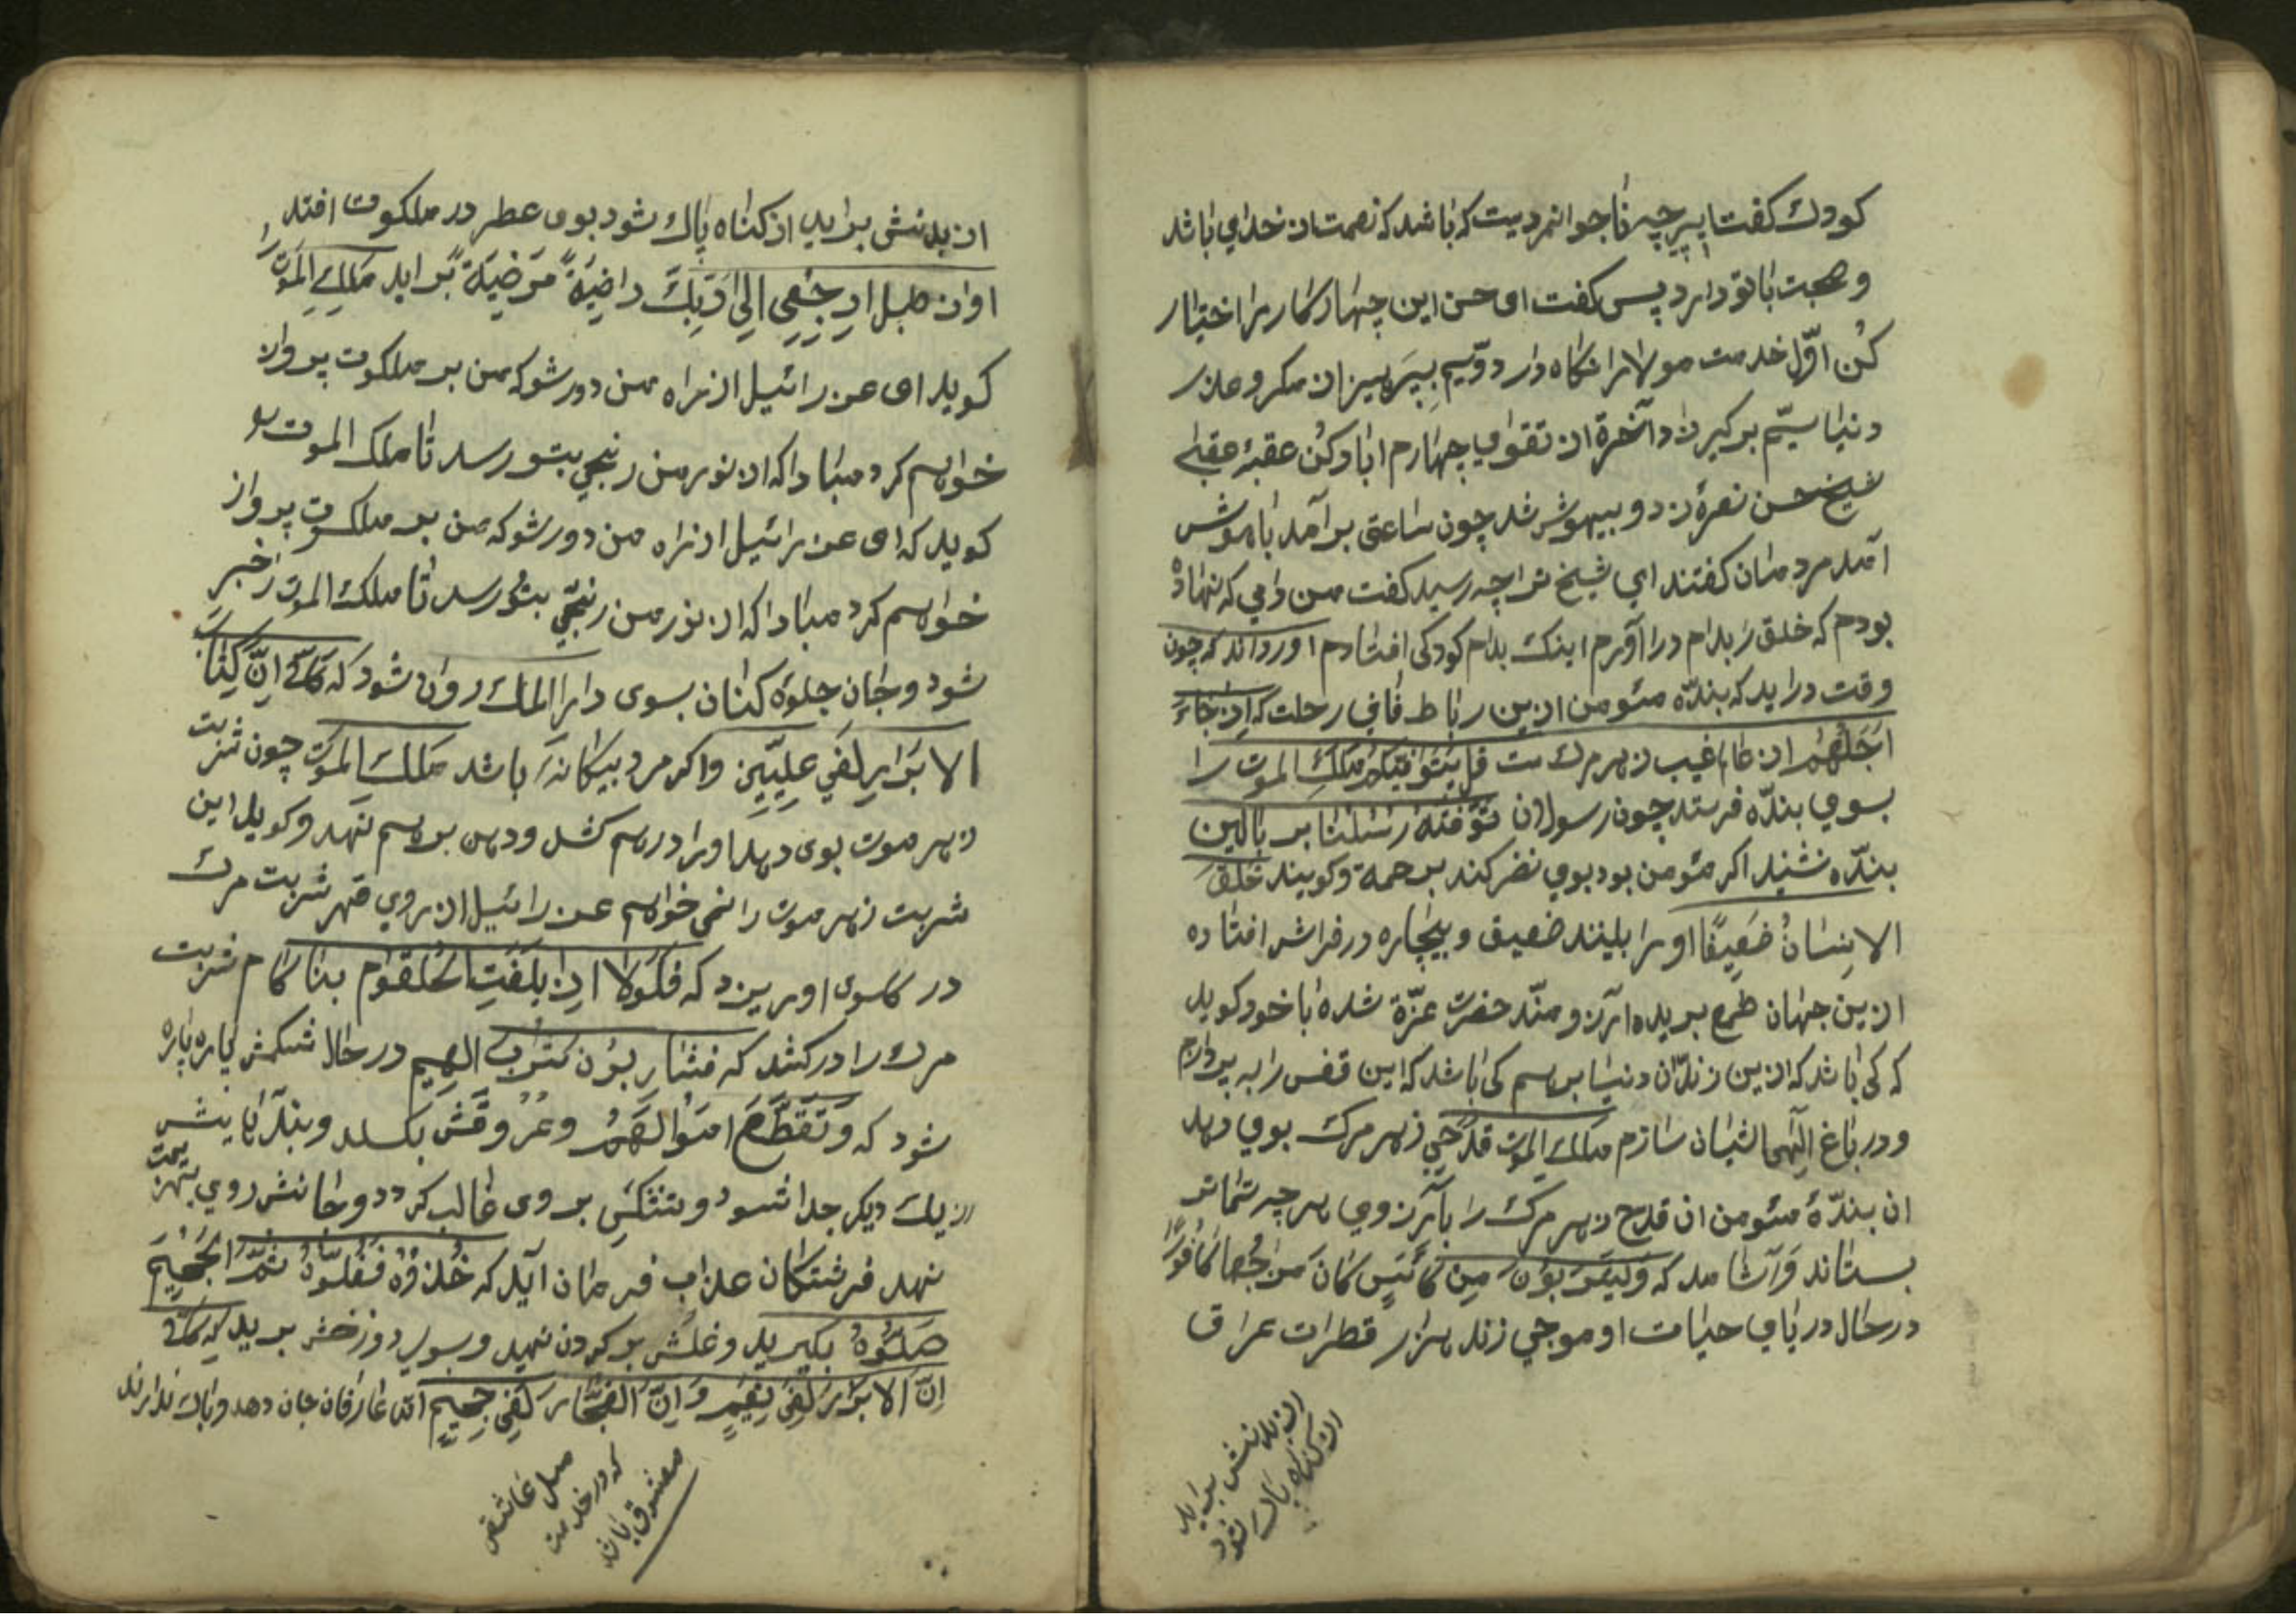 كودك كفت ای پیر چه ناجوانمردیت كه باشد كه نعمت از خدای باشد
و صحبت با تو دارد پس كفت ای حسن این چهار كار را اختیار
كُن اوّل خدمت مولا را نكاه دار دوّیم بپرهیز از مكر و غدر
دنیا سیّم بركیر زاد آخرة از تقوای چهارم اباد كُن عقبهٔ عقبی
شیخ حسن نعرهٔ زد و بیهوش شد چون ساعتی برآمد باهوش
آمد مردمان كفتند ای شیخ ترا چه رسید كفت من دامی كه نهاده
بودم كه خلق را بدام دراآورم اینك بدام كودكی افتادم اورداند كه چون
وقت دراید كه بندّه مئومن ازین رباط فانی رحلت كه اِذ جَاءَ
اَجَلُهُمْ از عالم غیب زهر مرك ست قل یَتَوَفّیكُمْ مَلَكُ الموت را
بسوی بندّه فرستد چون رسولان تَوَفَّتهُ رُسُلنا بر بالین
بندّه نشیند اكر مئومن بود بوی نضر كند برحمة و كویند خُلِقَ
الاِنسانُ ضَعِیفًا او را بلینند ضعیف و بیچاره در فراش افتاده
ازین جهان طمع بریده ارزومنّد حضرت عزّة شده با خود كوید
كه كی باشد كه ازین زندّان دنیا برهم كی باشد كه این قفس را به پردازم
و در باغ الٓهی اشیان سازم ملك الموت قدحی زهر مرك بوی دهد
ان بندّهٔ مئومن ان قدح زهر مرك را بآرزوی هر چه تماتر
بستاند و آشامد كه وَلیَشرَبوُنَ مِن كَأسٍ كانَ مَزجُها كافُورًا
درحال دریای حیات او موجی زند هزار قطرات عراق
از بدنش براید
از كناه پاك شود
از بدنش براید از كناه پاك شود بوی عطر در ملكوت افتد
اواز طبل اِرجِعِی اِلی رَبِّكَ راضِیَةً مَرضِیَةً براید مَلَكُ المَوتْ را
كوید ای عزرائیل از راه من دور شو كه من بر ملكوت پرواز
خواهم كرد مباداكه از نور من رنجی بتو رسد تا ملك الموت
كوید كه ای عزرائیل از راه من دور شو كه من بر ملكوت پرواز
خواهم كرد مباداكه از نور من رنجّی بتو رسد تا ملك الموت را خبر
شود و جان جلوهٔ كنان بسوی دارا الملك روان شود كه كَلّا اِنَّ كِتابَ
الابَرَارِ لَفی عِلِیّینَ و اكر مرد بیكانه باشد مَلَكُ المَوت چون شربت
زهر موت بوی دهد او را درهم كشد و دهن برهم نهد و كوید این
شربت زهر موت را نمی خواهم عزرائیل از روی قهر شربت مرك
در كلوی او ریزد كه فَلَولا اِذ بَلَغَتِ الحُلقُوم بناكام شربت
مرك را دركشد كه فشارِبوُن شرب الهیم درحال شكمش پاره پاره
شود كه و تَقَطَّعَ امَوالَهُمْ و عُرُوقَش بكسلد و بندّهایش
از یك دیكر جدا شود و تشنكی بر وی غالب كردد و جانش روی بهزیمت
نهد فرشتكان عذاب فرمان آید كه خُذُوهُ فَغُلّوُهُ ثُمَّ الجَحیمَ
صَلّوُهُ بكیرید و غلش بر كردن نهید و بسوی دوزخش برید كه كلّا
اِنَّ الابرَارَ لَفی نِعیمٍ وَاِنَّ الفُجّارَ لَفی جَحیمٍ اما عارفان جان دهد و باك ندارند
مثل عاشقی
كه در خدمت
معشوق باشد